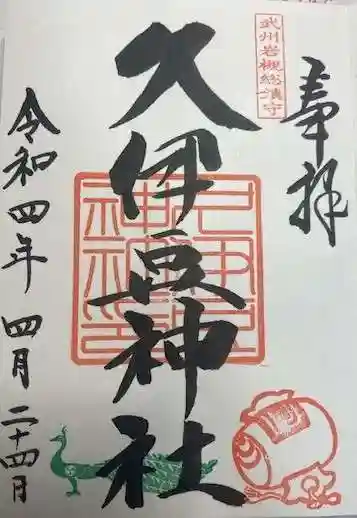 奉拝
武州岩槻総鎮守
久伊豆神社
令和四年 四月 二十四日